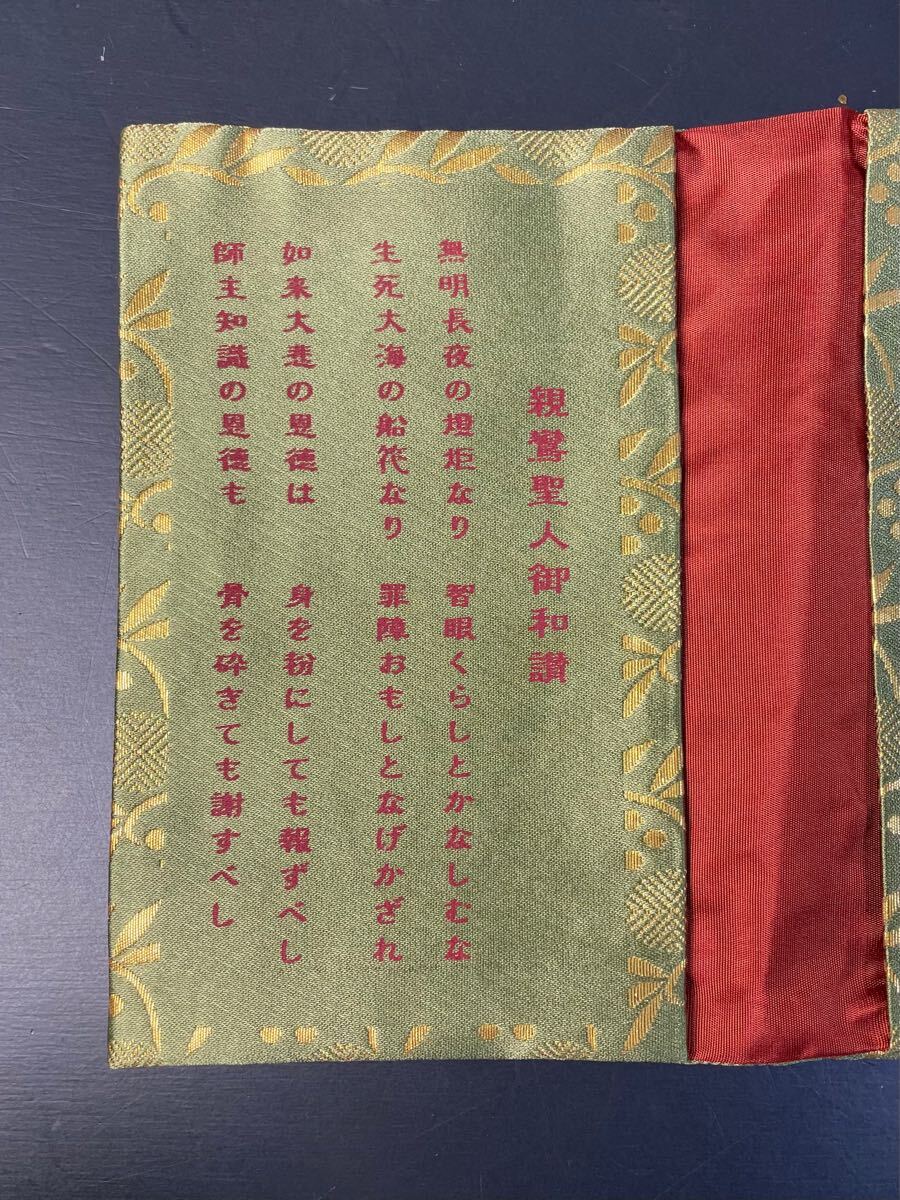 親鸞聖人御和讃
無明長夜の燈炬なり　智眼くらしとかなしむな
生死大海の船筏なり　罪障おもしとなげかざれ
如来大悲の恩徳は　身を粉にしても報ずべし
師主知識の恩徳も　骨を砕きても謝すべし